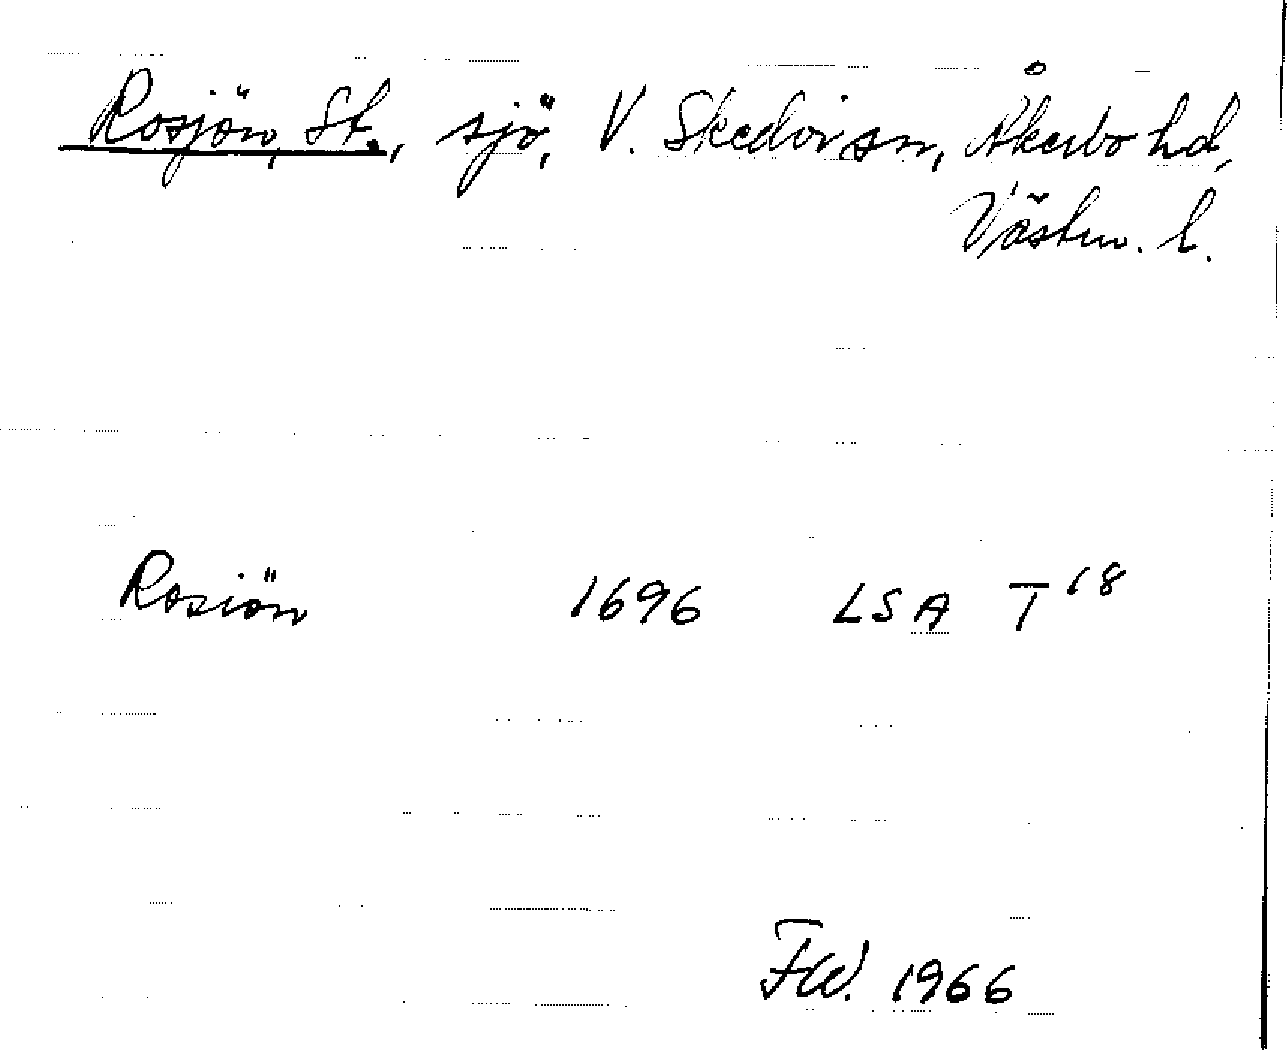 Rosjön, St., sjö, V. Skedvi sn, Åkerbo hd,
Västm. l.
Rosiön 1696 LSA T 18
FW. 1966